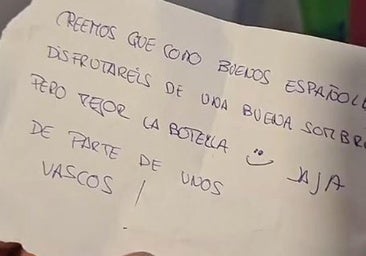 CREEMOS QUE COMO BUENOS ESPAÑOL
DISFRUTAREIS DE UNA BUENA SOMBR
PERO MEJOR LA BOTELLA JAJA
DE PARTE DE UNOS
VASCOS /